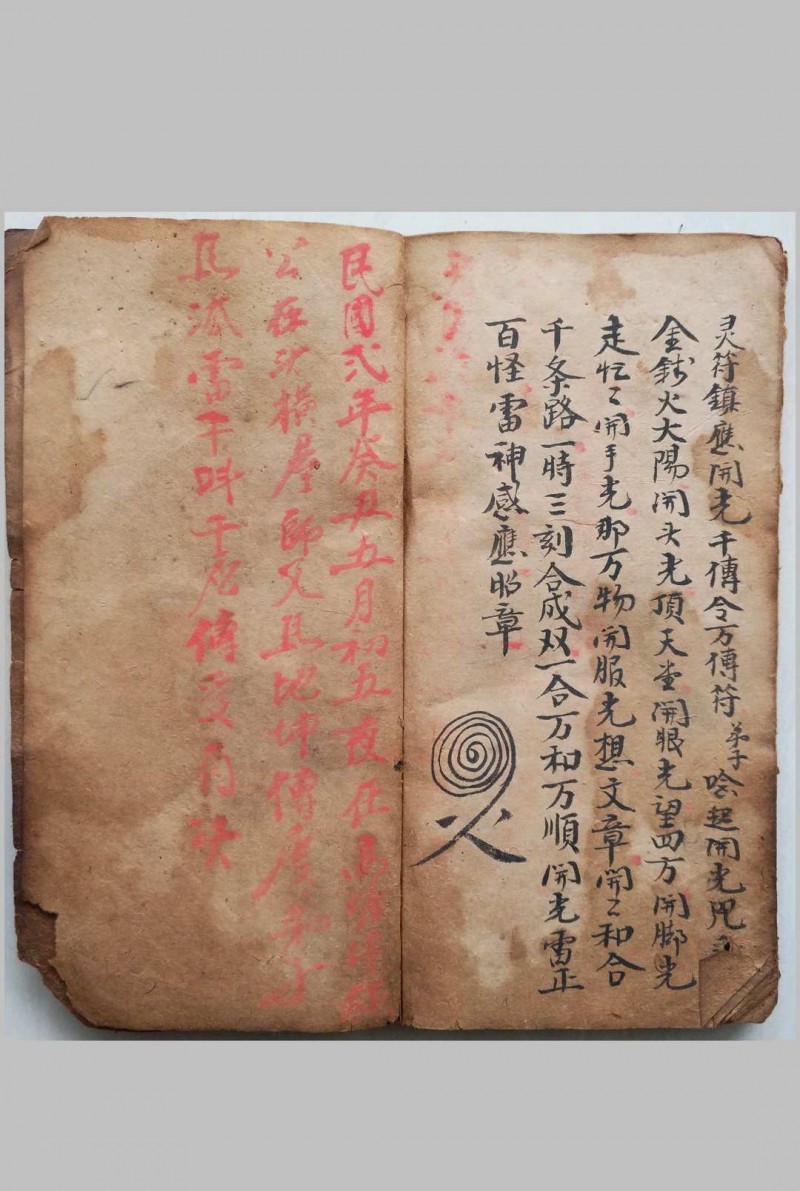 灵符鎮應開光千傳令万傳符弟子唸起開光咒
金錢火太陽開头光頂天堂開眼光望四方開脚光
走忙々開手光那万物開服光想文章開々和合
千条路一時三刻合成双一合万和万順開光雷正
百怪雷神感應昭章
民國弍年癸丑五月初五夜在
公在 橫屋師父 地坤傳度弟子
雷 傳受